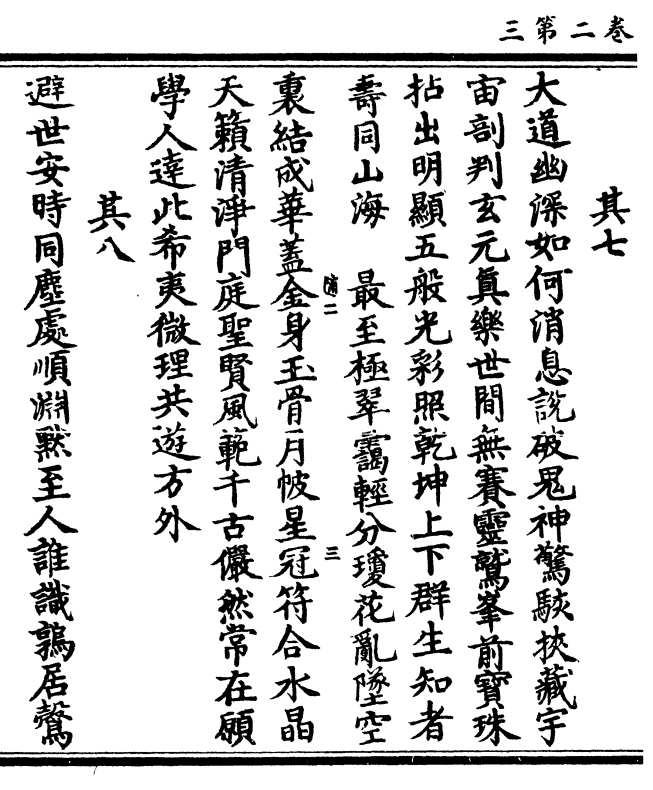 卷二第三
其七
大道幽深如何消息說破鬼神驚駭挾藏宇
宙剖判玄元真樂世間無賽靈鷲峯前寶珠
拈出明顯五般光彩照乾坤上下群生知者
壽同山海　最至極翠靄輕分瓊花亂墜空
裏結成華蓋金身玉骨月帔星冠符合水晶
天籟清淨門庭聖賢風範千古儼然常在願
學人達此希夷微理共遊方外
其八
避世安時同塵處順淵默至人誰識鶉居鷇
二
三